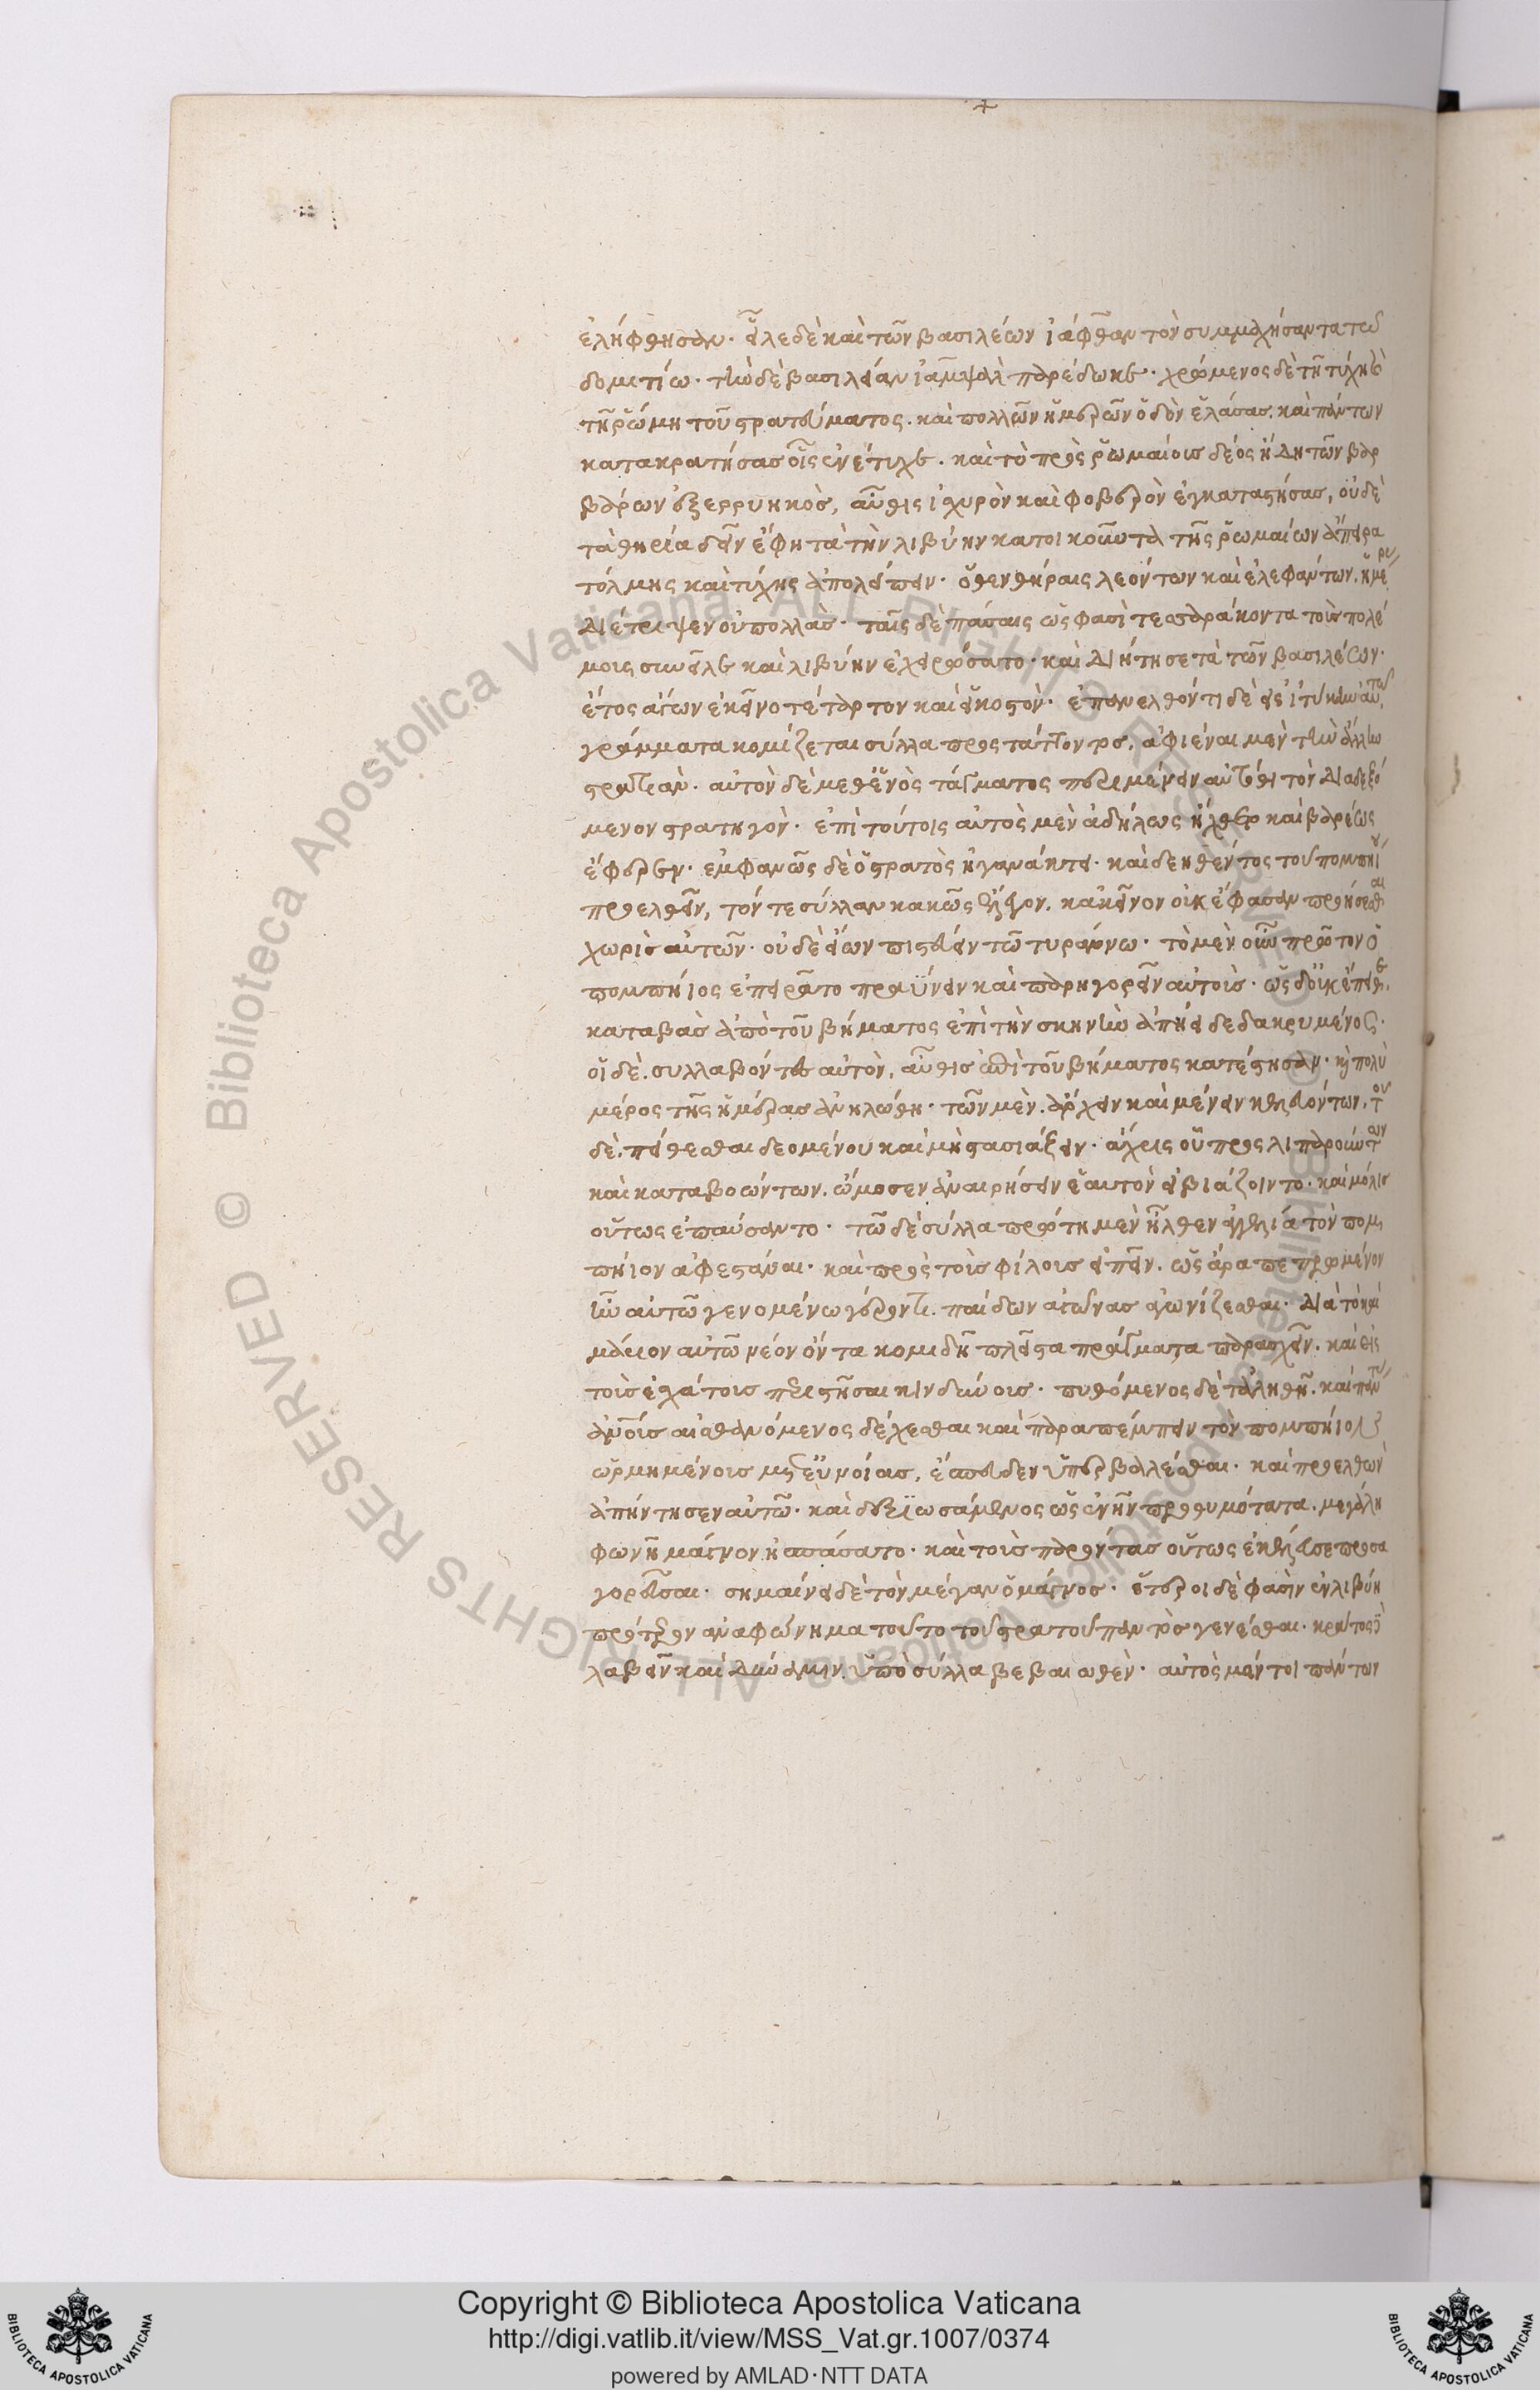 ἐλήφθησαν. εἷλε δὲ καὶ τῶν βασιλέων ἰάφθαν τὸν συμμαχήσαντα τῶ
δομιτίω. τὴν δὲ βασιλείαν ἰαμψαλ παρέδωκε. χρώμενος δὲ τῆ τύχη καὶ
τῆ ῥώμη τοῦ στρατεύματος. καὶ πολλῶν ἡμερῶν ὁδὸν ἐλάσας. καὶ πάντων
κατακρατήσας οἷς ἐνέτυχε. καὶ τὸ πρὸς ῥωμαίοις δέος ἤδη τῶν βαρ
βάρων ἐξερρυηκὸς, αὖθις ἰσχυρὸν καὶ φοβερὸν ἐγκαταστήσας, οὐδὲ
τὰ θηρία δεῖν ἔφη τὰ τὴν λιβύην κατοικοῦντα τῆς ῥωμαίων ἄπειρα
τόλμης καὶ τύχης ἀπολείπειν. ὅθεν θήραις λεόντων καὶ ἐλεφάντων. ἡμέρας
διέτριψεν οὐ πολλὰς. ταῖς δὲ πάσαις ὥς φασὶ τεσσαράκοντα τοὺς πολε
μίους συνεῖλε καὶ λιβύην ἐχειρώσατο. καὶ διήτησε τὰ τῶν βασιλέων.
ἔτος ἄγων ἐκεῖνο τέταρτον καὶ εἰκοστόν. ἐπανελθόντι δὲ εἰς ἰτύκην αὐτῶ
γράμματα κομίζεται σύλλα προστάττοντος. ἀφιέναι μὲν τὴν ἄλλην
στρατιὰν. αὐτὸν δὲ μεθ ἑνὸς τάγματος περιμένειν αὐτόθι τὸν διαδεξό
μενον στρατηγὸν. ἐπὶ τούτοις αὐτὸς μὲν ἀδήλως ἤχθετο καὶ βαρέως
ἔφερεν. ἐμφανῶς δὲ ὁ στρατὸς ἠγανάκτει. καὶ δεηθέντος τοῦ πομπηί
προελθεῖν, τόν τε σύλλαν κακῶς ἔλεγον. κἀκεῖνον οὐκ ἔφασαν προήσεσθαι
χωρὶς αὐτῶν. οὐδὲ εἴων πιστεύειν τῶ τυράννω. τὸ μὲν οὖν πρῶτον ὁ
πομπήιος ἐπειρᾶτο πραΰνειν καὶ παρηγορεῖν αὐτοὺς. ὡς δ οὐκ ἔπειθε.
καταβὰς ἀπὸ τοῦ βήματος ἐπὶ τὴν σκηνὴν ἀπήει δεδακρυμένος.
οἱ δὲ. συλλαβόντες αὐτὸν, αὖθις ἐπὶ τοῦ βήματος κατέστησαν. καὶ πολὺ
μέρος τῆς ἡμέρας ἀνηλώθη. τῶν μὲν. ἄρχειν καὶ μένειν κελευόντων. τοῦ
δὲ. πείθεσθαι δεομένου καὶ μὴ στασιάζειν. ἄχρις οὗ προσλιπαρούντων
καὶ καταβοώντων. ὤμοσεν ἀναιρήσειν ἑαυτὸν εἰ βιάζοιντο. καὶ μόλις
οὕτως ἐπαύσαντο. τῶ δὲ σύλλα πρώτη μὲν ἦλθεν ἀγγελία τὸν πομ
πήιον ἀφεστάναι. καὶ πρὸς τοὺς φίλους εἰπεῖν. ὡς ἄρα πεπρωμένον
ἦν αὐτῶ γενομένω γέροντι. παίδων ἀγῶνας ἀγωνίζεσθαι. διὰ τὸ καὶ
μάριον αὐτῶ νέον ὄντα κομιδῆ πλεῖστα πράγματα παρασχεῖν. καὶ εἰς
τοὺς ἐσχάτους περιστῆσαι κινδύνους. πυθόμενος δὲ τἀληθῆ. καὶ πάντας
ἀνθρώπους αἰσθανόμενος δέχεσθαι καὶ παραπέμπειν τὸν πομπήιον
ὡρμημένους μετ εὐνοίας, ἔσπευδεν ὑπερβαλέσθαι. καὶ προελθὼν
ἀπήντησεν αὐτῶ. καὶ δεξιωσάμενος ὡς ἐνῆν προθυμότατα. μεγάλη
φωνῆ μάγνον ἠσπάσατο. καὶ τοὺς παρόντας οὕτως ἐκέλευσε προσα
γορεῦσαι. σημαίνει δὲ τὸν μέγαν ὁ μάγνος. ἕτεροι δὲ φασὶν ἐν λιβύη
πρότερον ἀναφώνημα τοῦτο τοῦ στρατοῦ παντὸς γενέσθαι. κράτος δὲ
λαβεῖν καὶ δύναμιν. ὑπὸ σύλλα βεβαιωθὲν. αὐτὸς μέντοι πάντων
Copyright © Biblioteca Apostolica Vaticana
http://digi.vatlib.it/view/MSS_Vat.gr.1007/0374
powered by AMLAD·NTT DATA
BIBLIOTECA APOSTOLICA VATICANA
BIBLIOTECA APOSTOLICA VATICANA
© Biblioteca Apostolica Vaticana ALL RIGHTS RESERVED
© Biblioteca Apostolica Vaticana ALL RIGHTS RESERVED